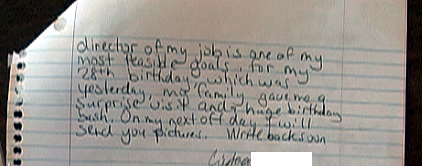 director of my job is one of my
most feasible goals. for my
28th birthday, which was
yesterday, my family gave me a
surprise visit and huge birthday
bash. On my next off day I will
send you pictures. Write back soon